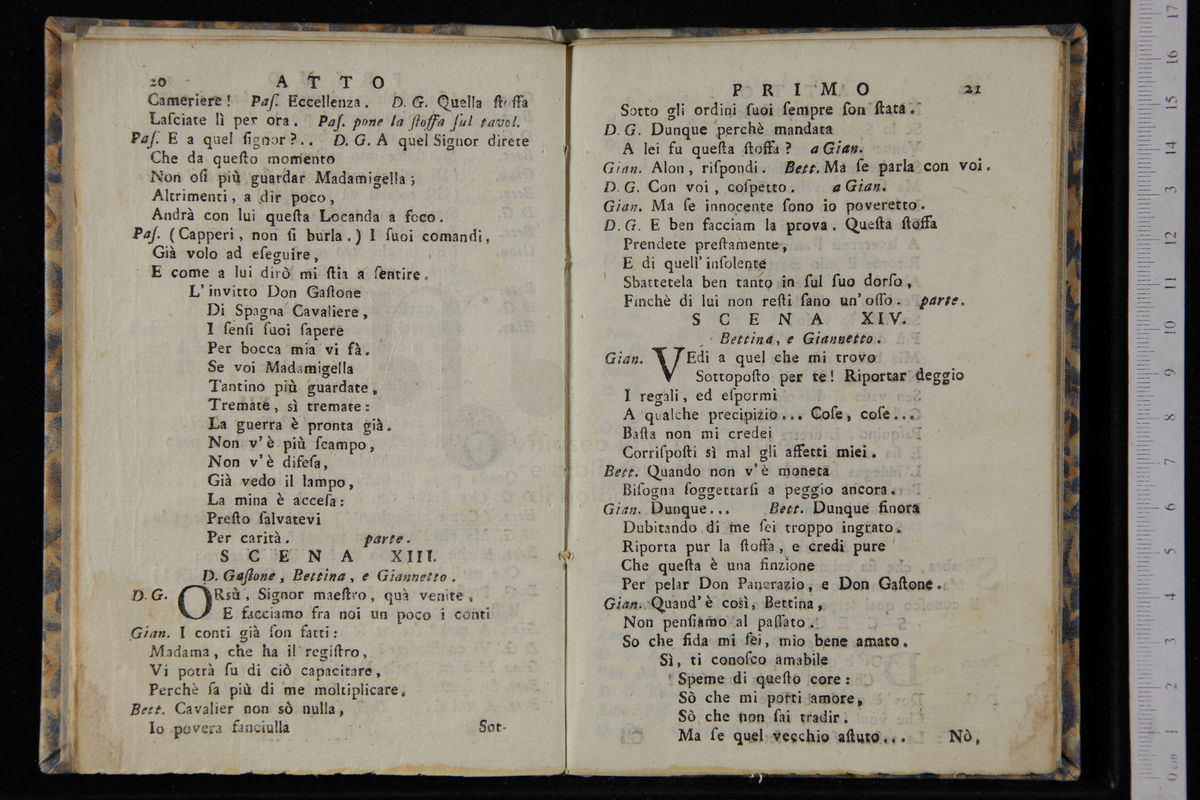 20 ATTO
Cameriere! Paſ. Eccellenza. D. G. Quella ſtoffa
Laſciate lì per ora. Paſ. pone la ſtoffa ſul tavol.
Paſ. E a quel ſignor?.. D. G. A quel Signor direte
Che da queſto momento
Non oſi più guardar Madamigella;
Altrimenti, a dir poco,
Andrà con lui queſta Locanda a foco.
Paſ. (Capperi, non ſi burla.) I ſuoi comandi,
Già volo ad eſeguire,
E come a lui dirò mi ſtia a ſentire.
L'invitto Don Gaſtone
Di Spagna Cavaliere,
I ſenſi ſuoi ſapere
Per bocca mia vi fà.
Se voi Madamigella
Tantino più guardate,
Tremate, sì tremate:
La guerra è pronta già.
Non v'è più ſcampo,
Non v'è difeſa,
Già vedo il lampo,
La mina è acceſa:
Preſto ſalvatevi
Per carità. parte.
SCENA XIII.
D. Gaſtone, Bettina, e Giannetto.
D. G. ORsù, Signor maeſtro, quà venite,
E facciamo fra noi un poco i conti
Gian. I conti già ſon fatti:
Madama, che ha il regiſtro,
Vi potrà ſu di ciò capacitare,
Perchè ſa più di me moltiplicare.
Bett. Cavalier non sò nulla,
Io povera fanciulla
Sot-
PRIMO 21
Sotto gli ordini ſuoi ſempre ſon ſtata.
D. G. Dunque perchè mandata
A lei fu queſta ſtoffa? a Gian.
Gian. Alon, riſpondi. Bett. Ma ſe parla con voi.
D. G. Con voi, coſpetto. a Gian.
Gian. Ma ſe innocente ſono io poveretto.
D. G. E ben facciam la prova. Queſta ſtoffa
Prendete preſtamente,
E di quell'inſolente
Sbattetela ben tanto in ſul ſuo dorſo,
Finchè di lui non reſti ſano un'oſſo. parte.
SCENA XIV.
Bettina, e Giannetto.
Gian. VEdi a quel che mi trovo
Sottopoſto per te! Riportar deggio
I regali, ed eſpormi
A qualche precipizio... Coſe, coſe...
Baſta non mi credei
Corriſpoſti sì mal gli affetti miei.
Bett. Quando non v'è moneta
Biſogna ſoggettarſi a peggio ancora.
Gian. Dunque... Bett. Dunque finora
Dubitando di me ſei troppo ingrato.
Riporta pur la ſtoffa, e credi pure
Che queſta è una finzione
Per pelar Don Pancrazio, e Don Gaſtone.
Gian. Quand'è così, Bettina,
Non penſiamo al paſſato.
So che fida mi ſei, mio bene amato.
Sì, ti conoſco amabile
Speme di queſto core:
Sò che mi porti amore,
Sò che non ſai tradir.
Ma ſe quel vecchio aſtuto...
Nò,